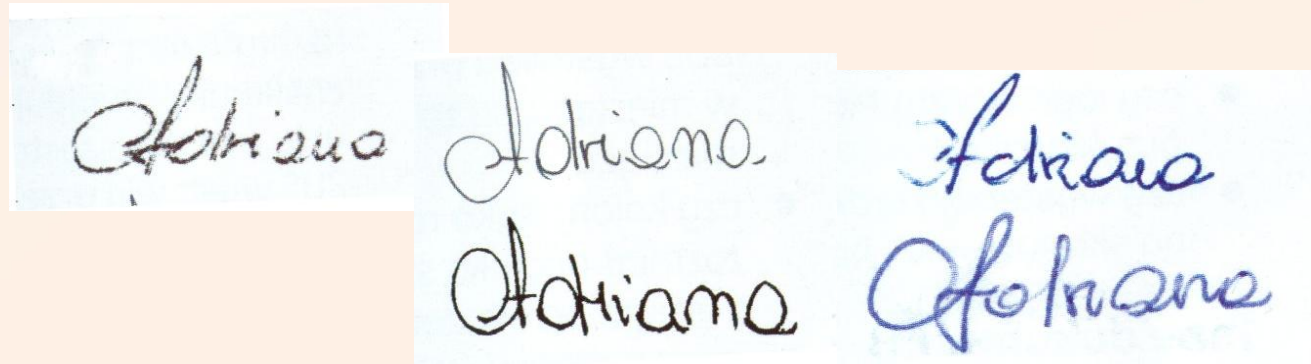 Adriana
Adriana
Adriana
Adriana
Adriana